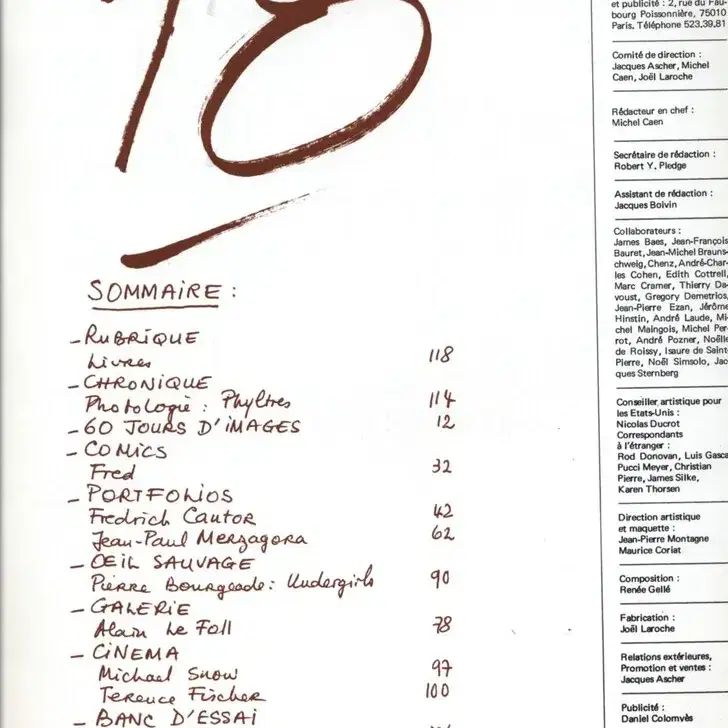 18
SOMMAIRE :
- RUBRIQUE
Livres 118
- CHRONIQUE
Photologie : Phyltres 114
- 60 JOURS D'IMAGES 12
- COMICS
Fred 32
- PORTFOLIOS
Fredrich Cantor 42
Jean-Paul Merzagora 62
- OEIL SAUVAGE
Pierre Bourgeade : Undergirls 90
- GALERIE
Alain Le Foll 78
- CINEMA
Michael Snow 97
Terence Fischer 100
- BANC D'ESSAI
et publicité : 2, rue du Fau-
bourg Poissonnière, 75010
Paris. Téléphone 523.39.81
Comité de direction :
Jacques Ascher, Michel
Caen, Joël Laroche
Rédacteur en chef :
Michel Caen
Secrétaire de rédaction :
Robert Y. Pledge
Assistant de rédaction :
Jacques Boivin
Collaborateurs :
James Baes, Jean-François
Bauret, Jean-Michel Brauns-
chweig, Chenz, André-Char-
les Cohen, Edith Cottrell,
Marc Cramer, Thierry Da-
voust, Gregory Demetrios,
Jean-Pierre Ezan, Jérôme
Hinstin, André Laude, Mi-
chel Maingois, Michel Per-
rot, André Pozner, Noëlle
de Roissy, Isaure de Saint-
Pierre, Noël Simsolo, Jac-
ques Sternberg
Conseiller artistique pour
les Etats-Unis :
Nicolas Ducrot
Correspondants
à l'étranger :
Rod Donovan, Luis Gasca
Pucci Meyer, Christian
Pierre, James Silke,
Karen Thorsen
Direction artistique
et maquette :
Jean-Pierre Montagne
Maurice Coriat
Composition :
Renée Gellé
Fabrication :
Joël Laroche
Relations extérieures,
Promotion et ventes :
Jacques Ascher
Publicité :
Daniel Colomvès